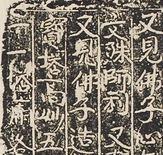 又見佛子
文殊師利又
又見佛子造
寶塔高妙五
一塔廟